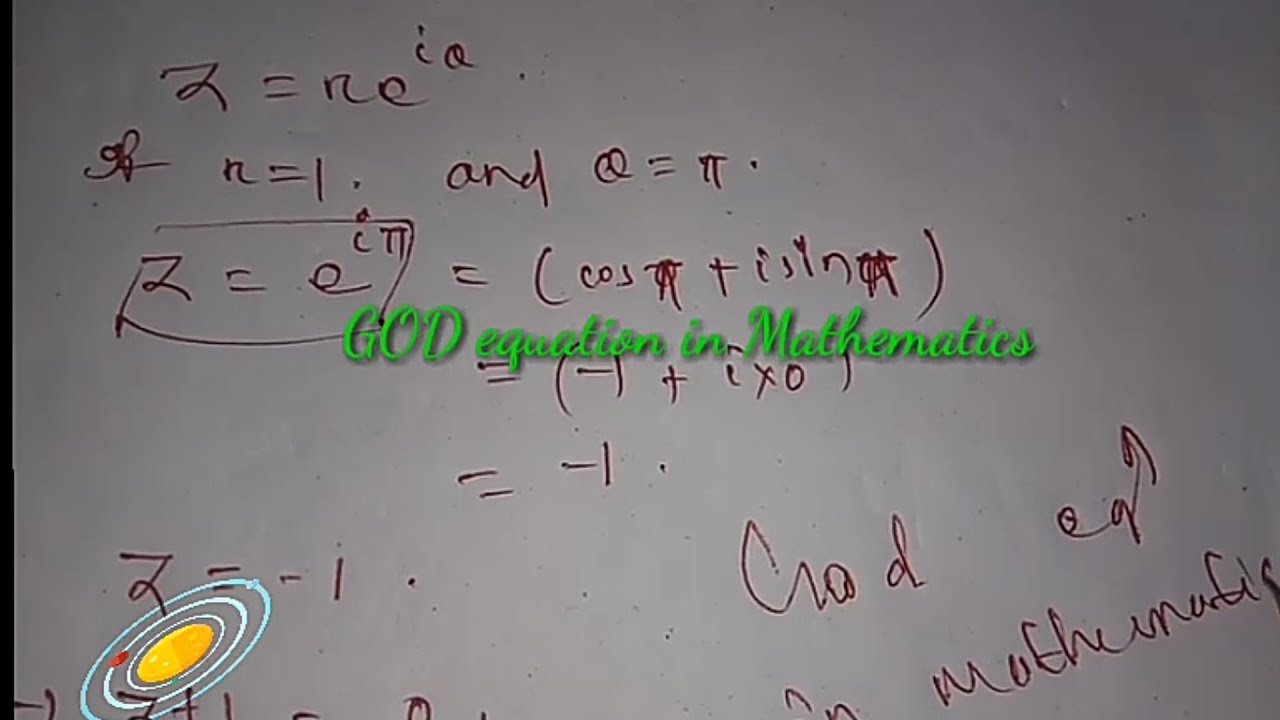 z = re^{iθ}.
If r=1. and θ=π.
z = e^{iπ} = (cosπ + i sinπ)
GOD equation in Mathematics
= (-1 + i×0)
= -1.
God eqⁿ
z = -1.
in mathematics
z+1 = 0